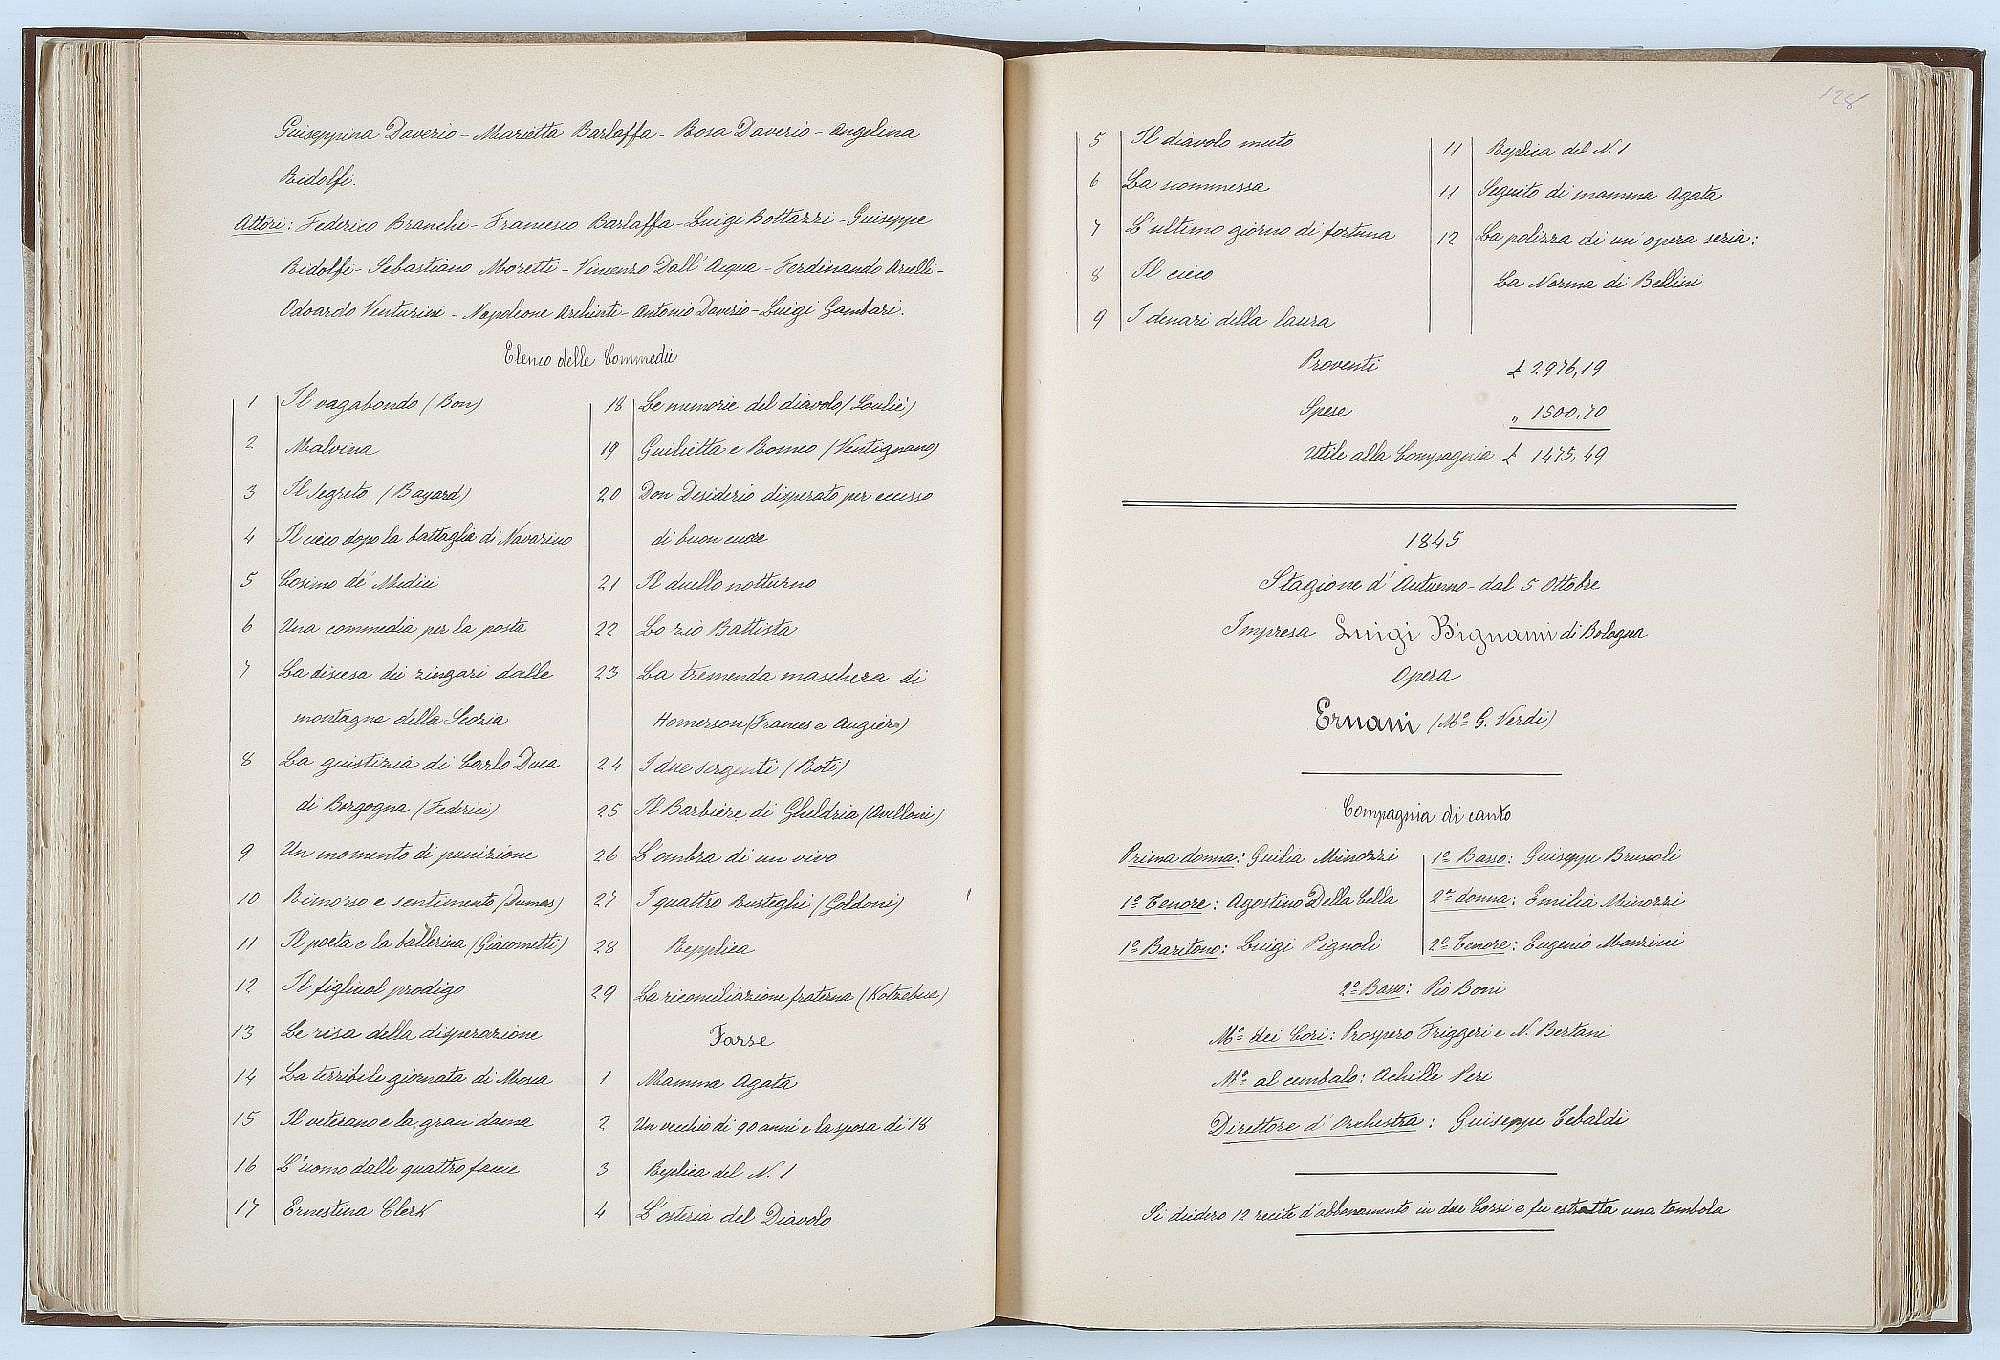 Guiseppina Daverio - Marietta Barlaffa - Rosa Daverio - Angelina
Ridolfi.
Attori: Federico Branchi - Francesco Barlaffa - Luigi Bottazzi - Guiseppe
Ridolfi - Sebastiano Moretti - Vincenzo Dall'Acqua - Ferdinando Arelli -
Odoardo Venturini - Napoleone Archinti - Antonio Daverio - Luigi Gambari.
Elenco delle Commedie
1 Il vagabondo (Bon)
2 Malvina
3 Il Segreto (Bayard)
4 Il cieco dopo la battaglia di Navarino
5 Cosimo de' Medici
6 Una commedia per la posta
7 La discesa dei zingari dalle
montagne della Scozia
8 La giustizia di Carlo Duca
di Borgogna (Federici)
9 Un momento di punizione
10 Rimorso e sentimento (Dumas)
11 Il poeta e la ballerina (Giacometti)
12 Il figliuol prodigo
13 Le risa della disperazione
14 La terribile giornata di Mosca
15 Il veterano e la gran dama
16 L'uomo dalle quattro facce
17 Ernestina Clerk
18 Le memorie del diavolo (Soulié)
19 Guilietta e Romeo (Ventignano)
20 Don Desiderio disperato per eccesso
di buon cuore
21 Il duello notturno
22 Lo zio Battista
23 La tremenda maschera di
Homerson (Frances e Augiero)
24 I due sergenti (Roti)
25 Il Barbiere di Gheldria (Avelloni)
26 L'ombra di un vivo
27 I quattro Rusteghi (Goldoni)
28 Repplica
29 La riconciliazione fraterna (Kotzebue)
Farse
1 Mamma Agata
2 Un vecchio di 90 anni e la sposa di 18
3 Replica del N. 1
4 L'osteria del Diavolo
128
5 Il diavolo muto
6 La scommessa
7 L'ultimo giorno di fortuna
8 Il cieco
9 I denari della laura
11 Replica del N. 1
11 Seguito di mamma Agata
12 La polizza di un'opera seria:
La Norma di Bellini
Proventi £ 2976,19
Spese „ 1500,70
Utile alla Compagnia £ 1475,49
1845
Stagione d'Autunno - dal 5 Ottobre
Impresa Luigi Bignami di Bologna
Opera
Ernani (Mo G. Verdi)
Compagnia di canto
Prima donna: Guilia Minozzi
1o Tenore: Agostino Della Cella
1o Baritono: Luigi Pignoli
1o Basso: Guiseppe Bruscoli
2a donna: Emilia Minozzi
2o Tenore: Eugenio Manzini
2o Basso: Pio Boni
Mo dei Cori: Prospero Friggeri e N. Bertani
Mo al cembalo: Achille Peri
Direttore d'Orchestra: Guiseppe Tebaldi
Si diedero 12 recite d'abbonamento in due Corsi e fu estratta una tombola